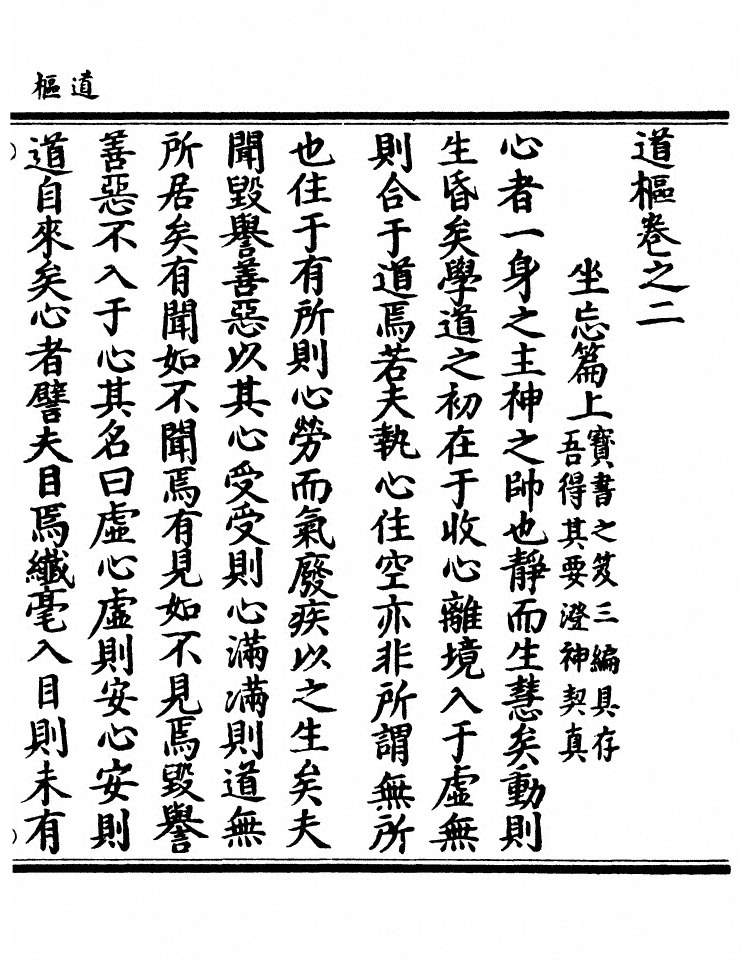 道樞
道樞卷之二
坐忘篇上
寶書之笈三編具存
吾得其要澄神契真
心者一身之主神之帥也靜而生慧矣動則
生昏矣學道之初在于收心離境入于虛無
則合于道焉若夫執心住空亦非所謂無所
也住于有所則心勞而氣廢疾以之生矣夫
聞毀譽善惡以其心受受則心滿滿則道無
所居矣有聞如不聞焉有見如不見焉毀譽
善惡不入于心其名曰虛心虛則安心安則
道自來矣心者譬夫目焉纖毫入目則未有